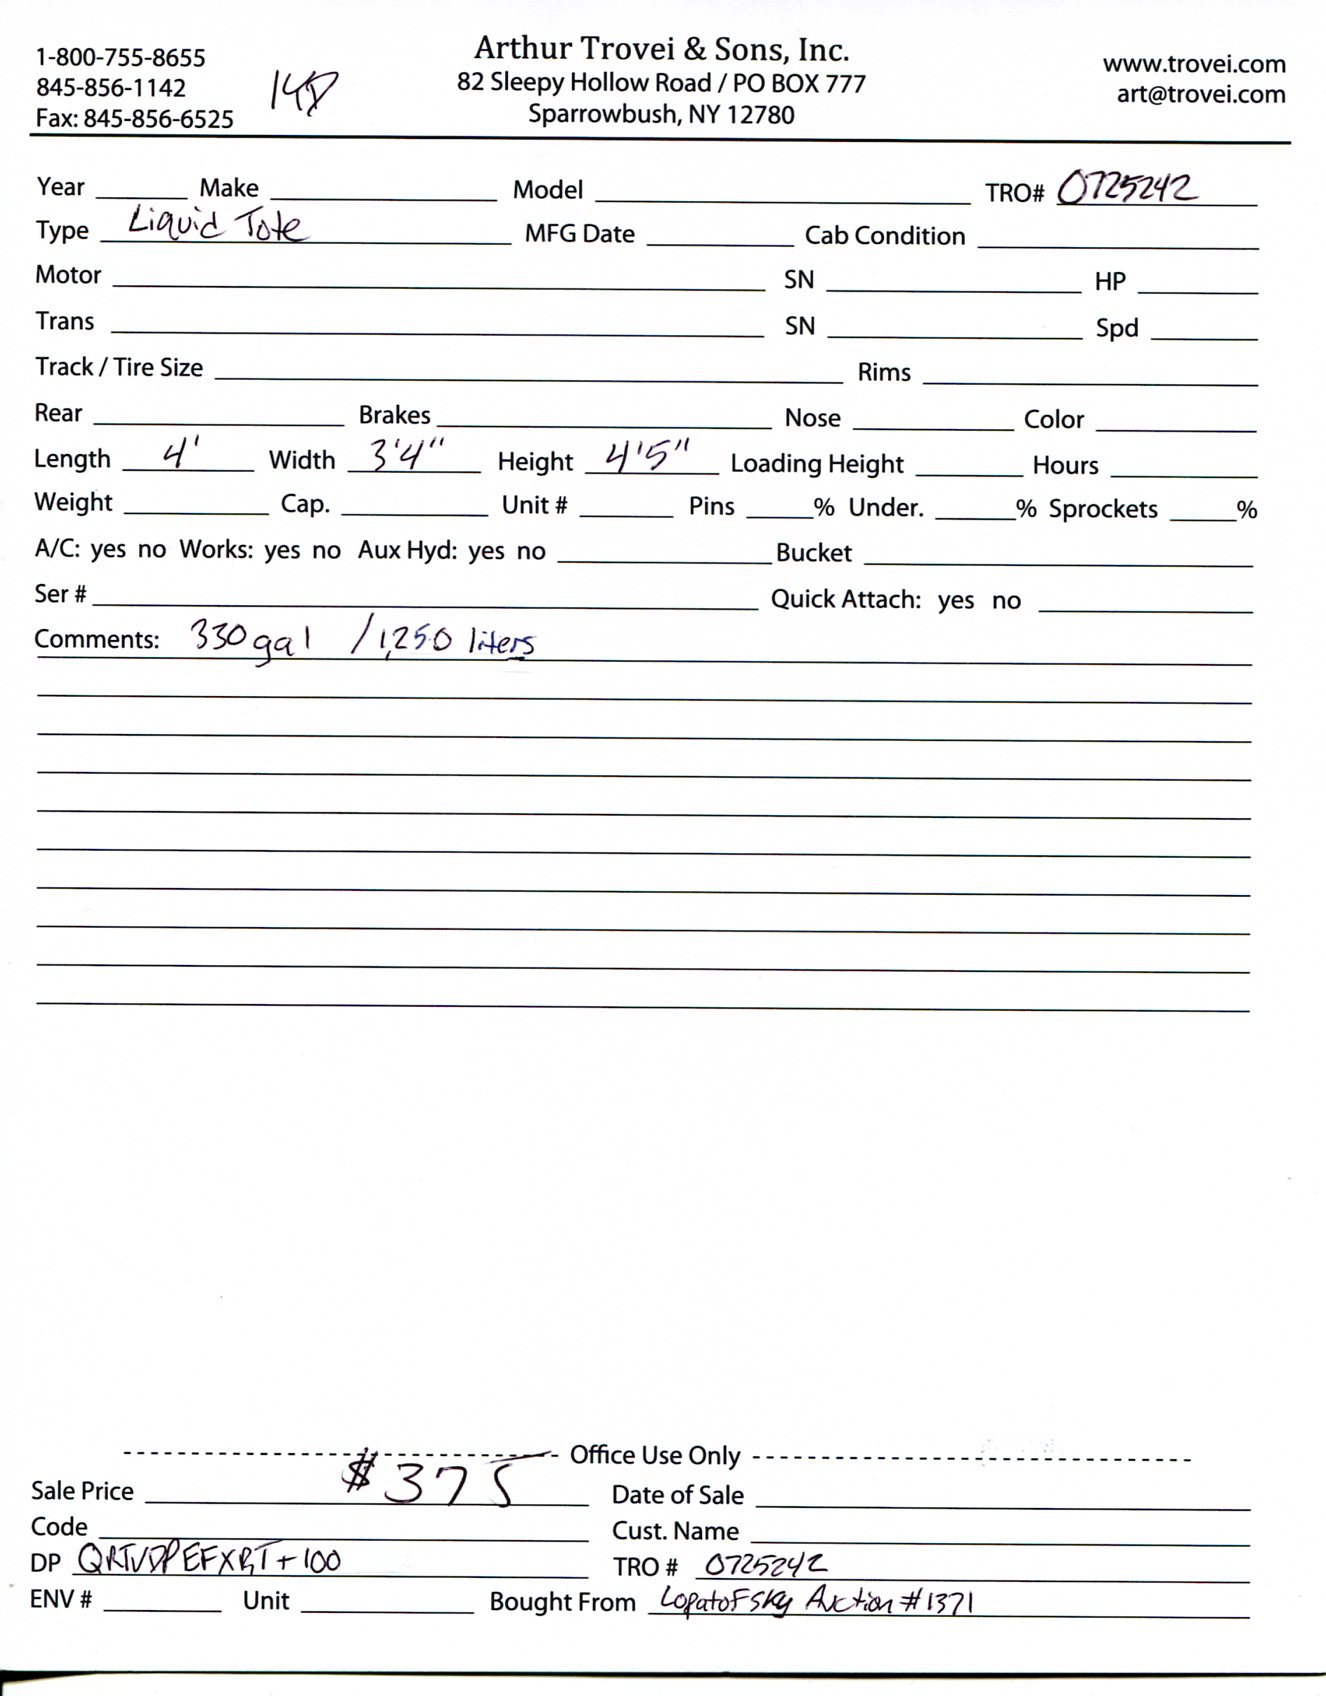 1-800-755-8655
845-856-1142
Fax: 845-856-6525
148
Arthur Trovei & Sons, Inc.
82 Sleepy Hollow Road / PO BOX 777
Sparrowbush, NY 12780
www.trovei.com
art@trovei.com
Year Make Model TRO# 0725242
Type Liquid Tote MFG Date Cab Condition
Motor SN HP
Trans SN Spd
Track / Tire Size Rims
Rear Brakes Nose Color
Length 4' Width 3'4" Height 4'5" Loading Height Hours
Weight Cap. Unit # Pins % Under. % Sprockets %
A/C: yes no Works: yes no Aux Hyd: yes no Bucket
Ser # Quick Attach: yes no
Comments: 330 gal / 1,250 liters
Office Use Only
Sale Price $375 Date of Sale
Code Cust. Name
DP TRO # 0725242
ENV # Unit Bought From Lopatofsky Auction #1371